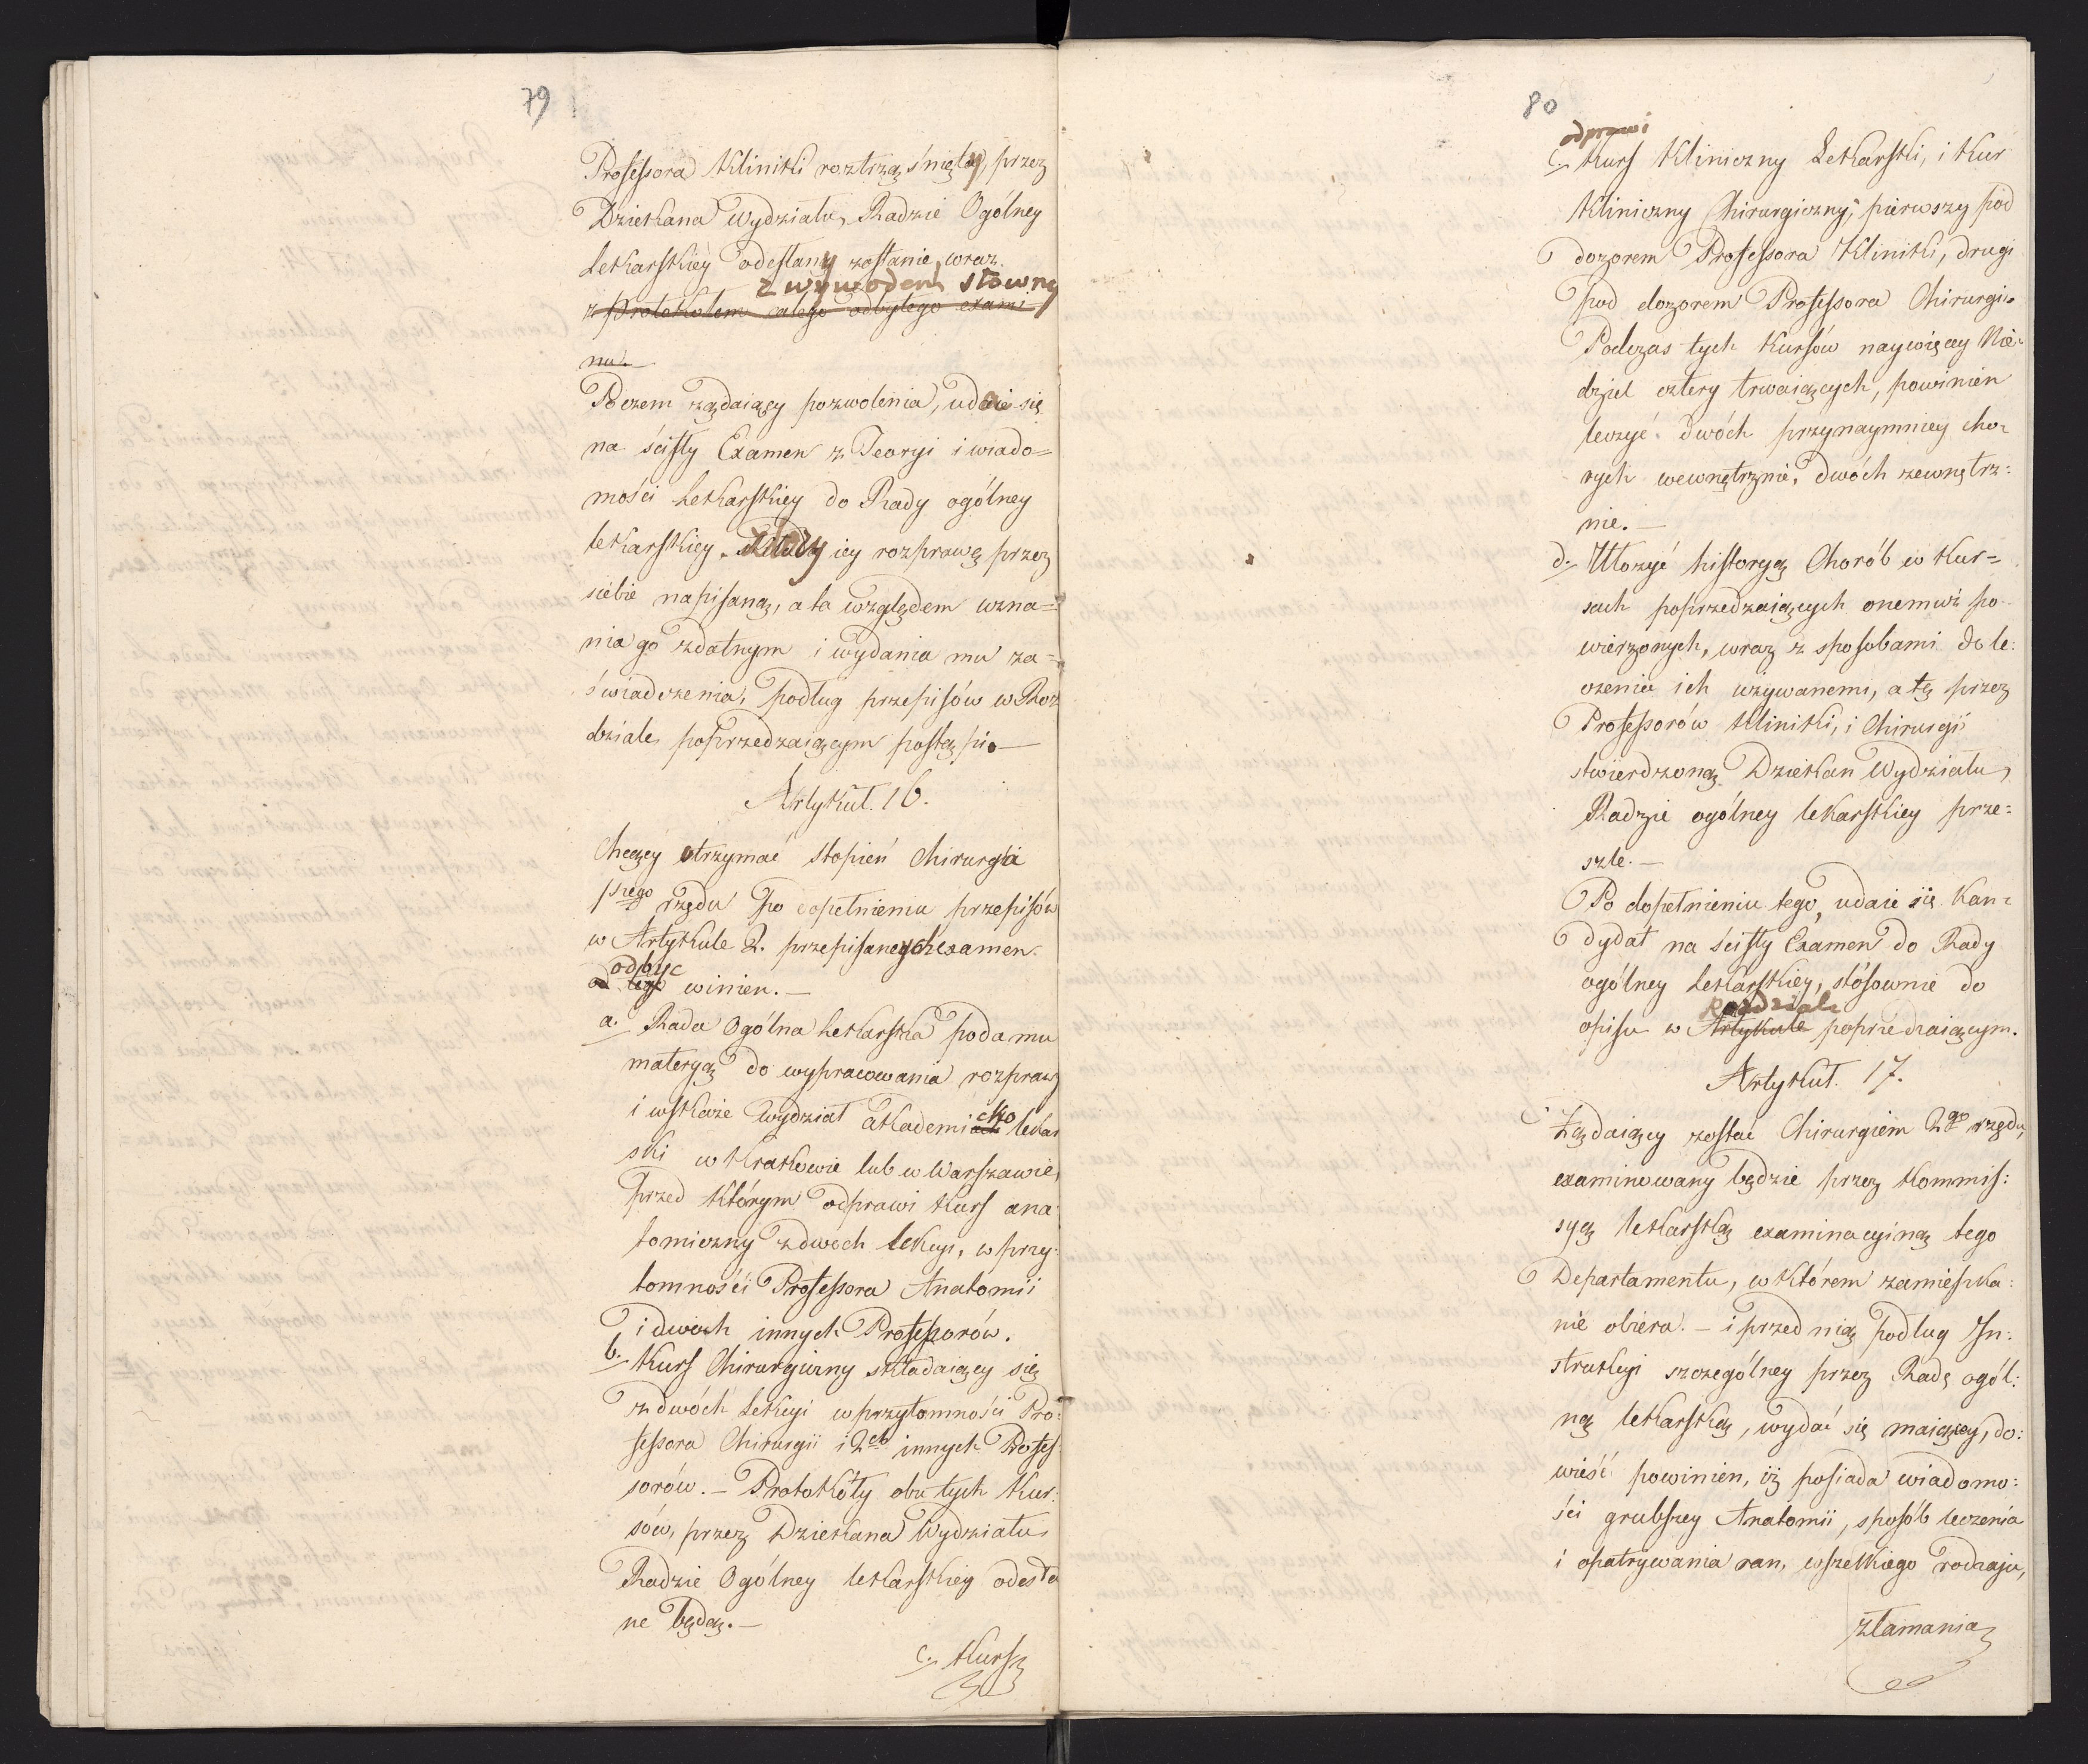 79
Professora Kliniki roztrząśnięty, przez
Dziekana Wydziału, Radzie Ogólney
Lekarskiey odesłany zostanie, wraz
z wywodem słowny
z Protokołem całego odbytego exami
nu.—
Poczem żądaiący pozwolenia, udaie się
na ścisły Examen z Teoryi i wiado=
mości Lekarskiey do Rady ogólney
lekarskiey. iey rozprawę przez
siebie napisaną, a ta względem uzna=
nia go zdatnym i wydania mu za=
świadczenia, podług przepisów w Roz
dziale poprzedzaiącym postąpi.—
Artykuł. 16.
Chcący otrzymać stopień Chirurga
1szego rzędu po dopełnieniu przepisów
w Artykule 2. przepisanych examen
odbyc
winien.—
a. Rada Ogólna Lekarska poda mu
materyą do wypracowania rozprawy
i wskaże Wydział Akademicko lekar
ski w Krakowie lub w Warszawie,
przed którym odprawi Kurs ana
tomiczny z dwóch Lekcyi, w przy=
tomności Professora Anatomii
i dwóch innych Professorów.
b. Kurs Chirurgiczny składaiący się
z dwóch Lekcyi w przytomności Pro=
fessora Chirurgii i 2ch innych Profes=
sorów. — Protokóły obu tych Kur=
sów, przez Dziekana Wydziału
Radzie Ogólney lekarskiey odesła
ne będą.—
c. Kurs
80
odprawi
c. Kurs Kliniczny Lekarski, i Kur
Kliniczny Chirurgiczny, pierwszy pod
dozorem Professora Kliniki, drugi
pod dozorem Professora Chirurgii.
Podczas tych Kursów naywięcey Nie=
dziel cztery trwaiących, powinien
leczyć dwóch przynaymniey cho=
rych wewnętrznie, dwóch zewnętrz=
nie.—
d. Ułożyć historyą Chorób w Kur=
sach poprzedzaiących onemuż po=
wierzonych, wraz z sposobami do le=
czenia ich używanemi, a tę przez
Professorów Kliniki, i Chirurgii
stwierdzoną Dziekan Wydziału,
Radzie ogólney lekarskiey prze=
szle.—
Po dopełnieniu tego, udaie się Kan=
dydat na ścisły Examen do Rady
ogólney Lekarskiey, stósownie do
Rozdziale
opisu w Artykule poprzedzaiącym.
Artykuł. 17.
Żądaiący zostać Chirurgiem 2go rzędu,
examinowany będzie przez Kommis=
syą lekarską examinacyiną tego
Departamentu, w którem zamieszka=
nie obiera. — i przed nią podług In=
strukcyi szczególney przez Radę ogól=
ną lekarską, wydać się maiącey, do=
wieść powinien, iż posiada wiadomo=
ści grubszey Anatomii, sposób leczenia
i opatrywania ran, wszelkiego rodzaju,
złamania